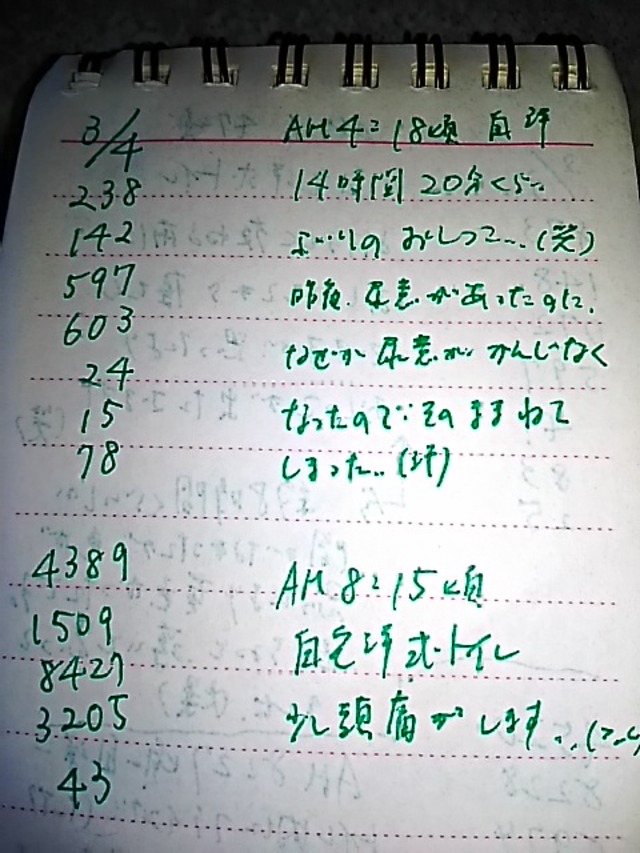 3/4 AM 4:18頃 自 洋
238 14時間 20分くらい
142 ぶりの おしっこ...(笑)
597 昨夜、尿意があったのに、
603 なぜか 尿意が かんじなく
24 なったので…そのままねて
15 しまった..(汗)
78
4389 AM 8:15頃
1509 自宅洋式トイレ
8427 少し頭痛がします...
3205
43